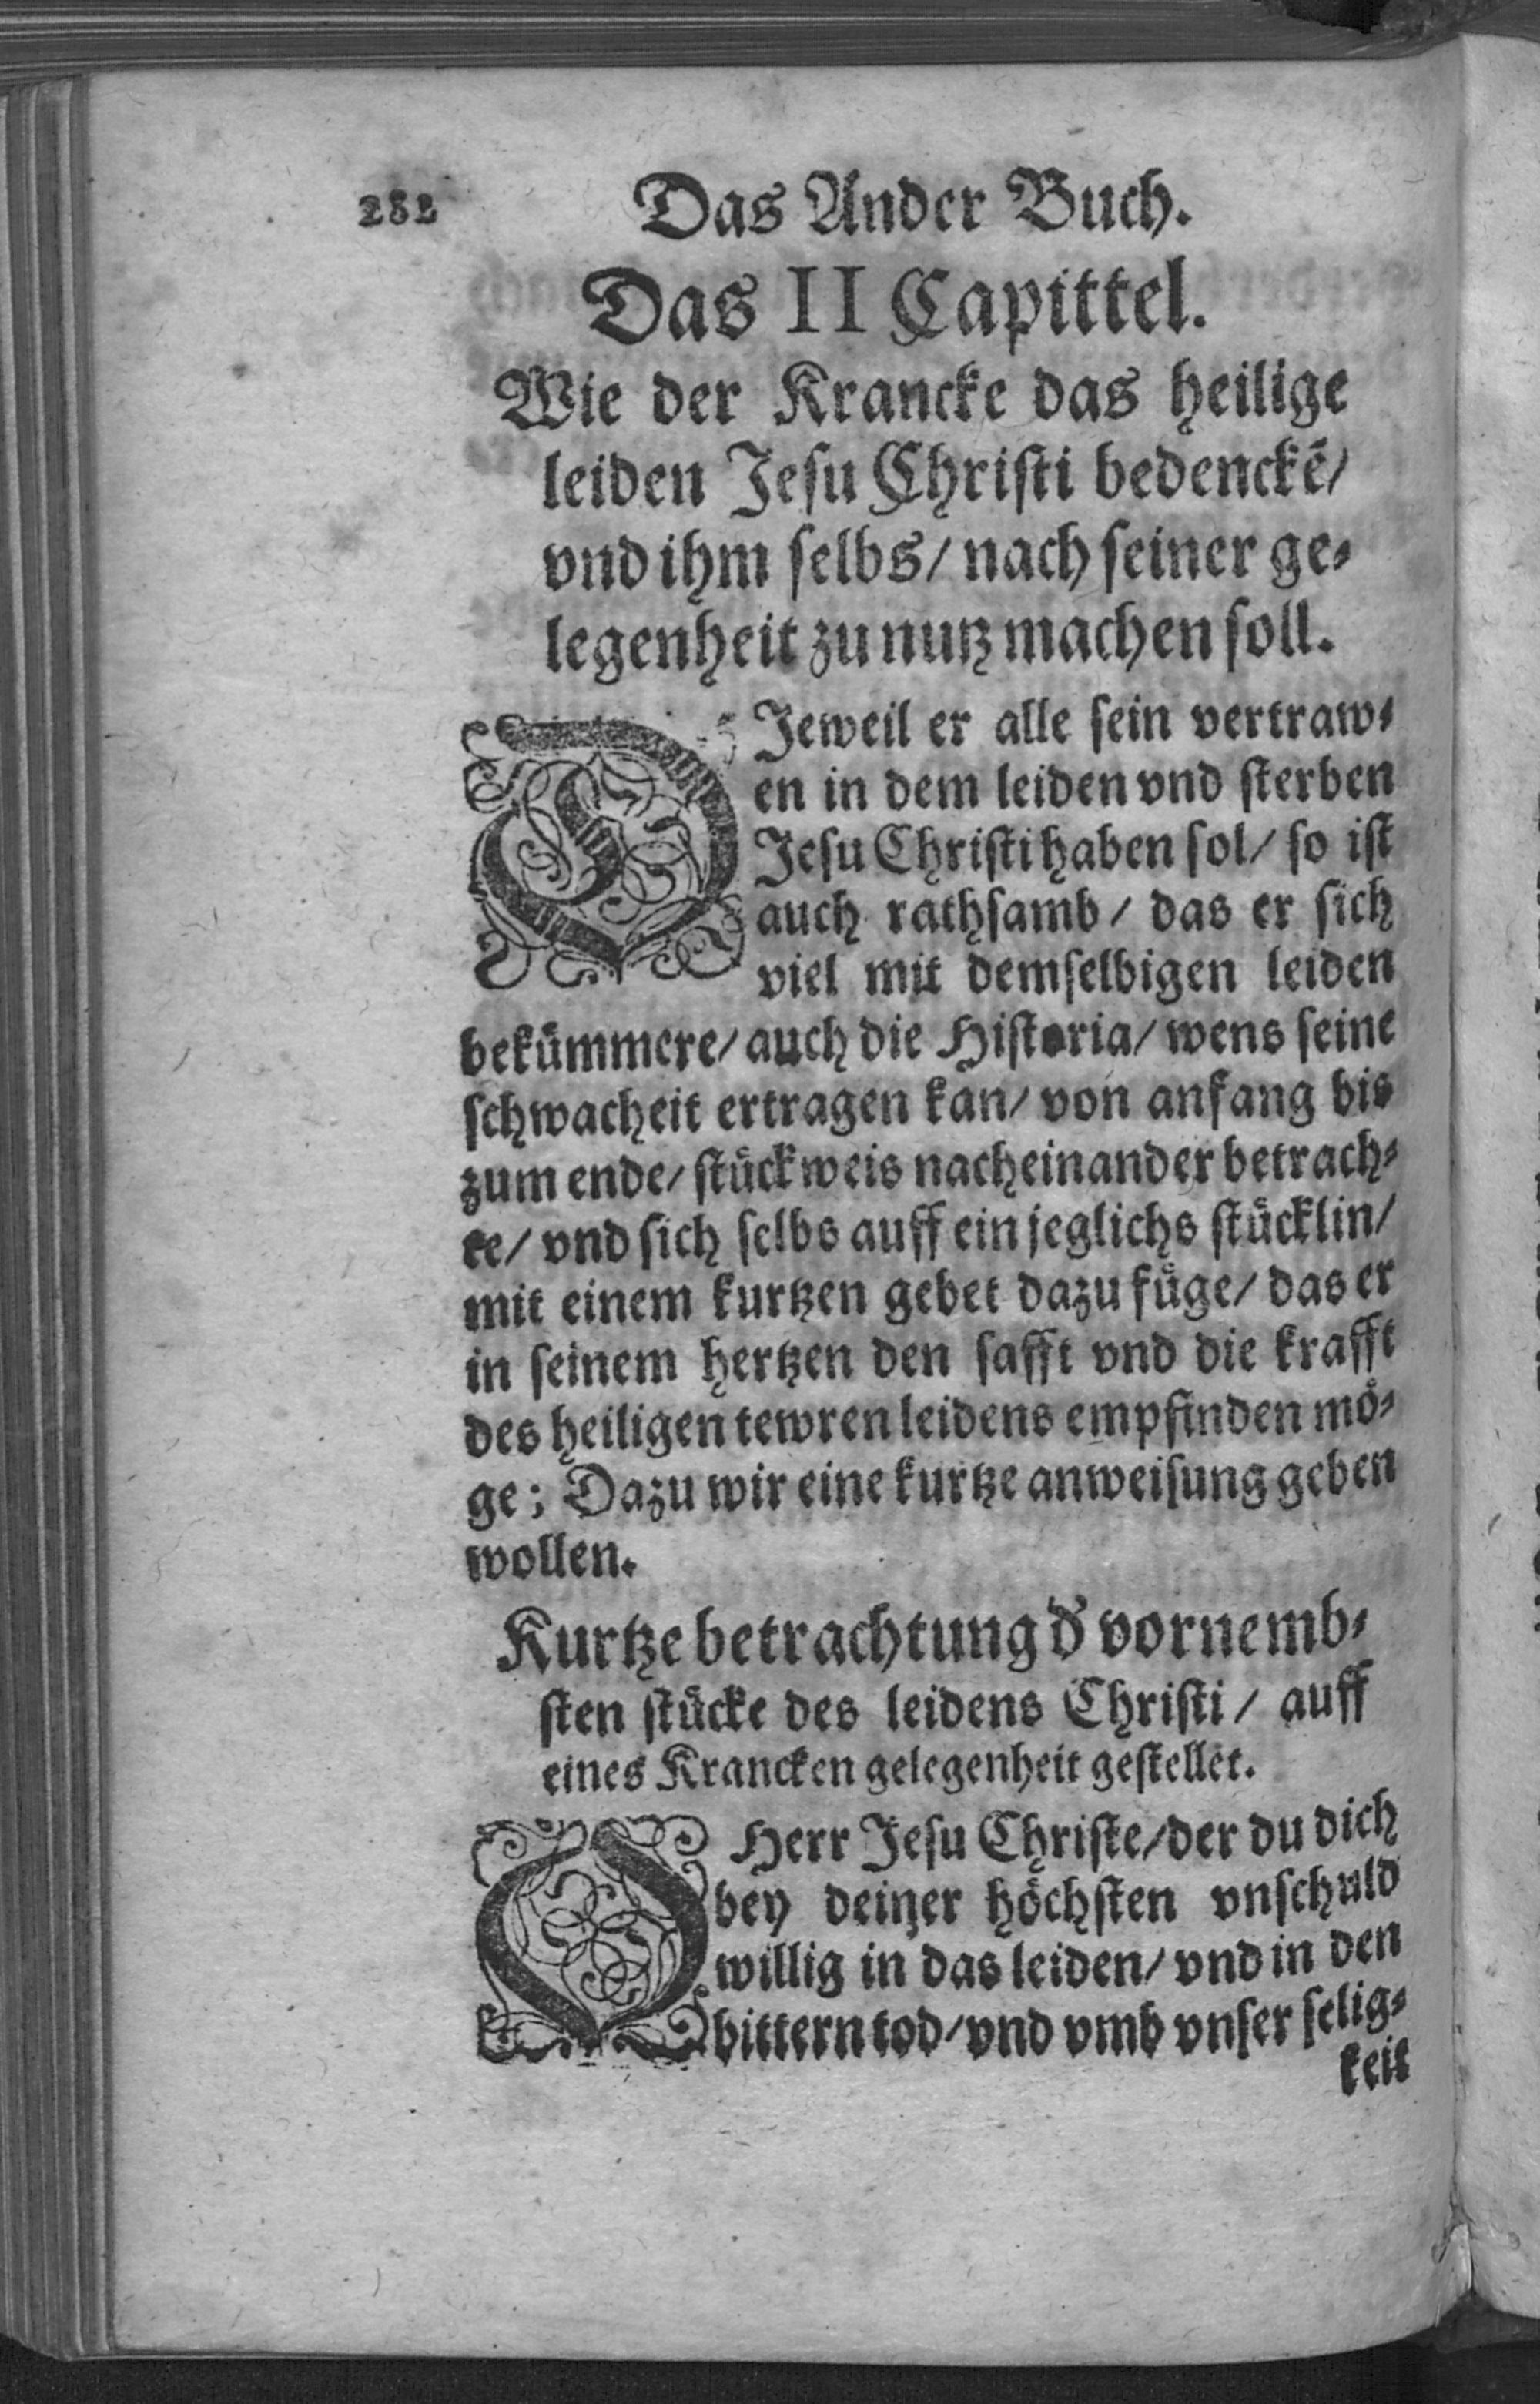 282 Das Ander Buch.
Das II Capittel.
Wie der Krancke das heilige
leiden Jesu Christi bedenckē/
vnd ihm selbs/ nach seiner ge-
legenheit zu nutz machen soll.
DJeweil er alle sein vertraw-
en in dem leiden vnd sterben
Jesu Christi haben sol/ so ist
auch rathsamb/ das er sich
viel mit demselbigen leiden
bekümmere/ auch die Historia/ wens seine
schwacheit ertragen kan/ von anfang bis
zum ende/ stückweis nacheinander betrach-
te/ vnd sich selbs auff ein jeglichs stücklin/
mit einem kurtzen gebet dazu füge/ das er
in seinem hertzen den safft vnd die krafft
des heiligen tewren leidens empfinden mö-
ge; Dazu wir eine kurtze anweisung geben
wollen.
Kurtze betrachtung d' vornemb-
sten stücke des leidens Christi/ auff
eines Krancken gelegenheit gestellet.
O Herr Jesu Christe/ der du dich
bey deiner höchsten vnschuld
willig in das leiden/ vnd in den
bittern tod/ vnd vmb vnser selig-
keit